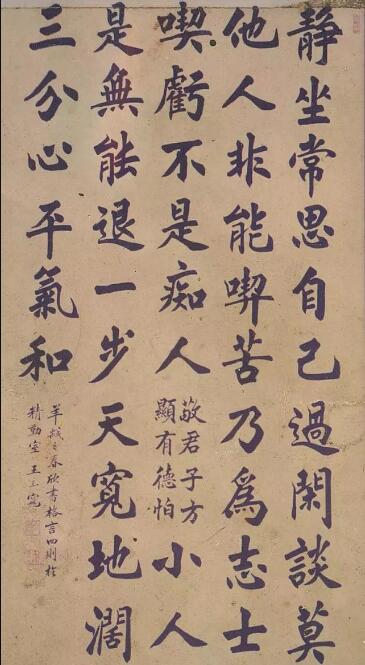 靜坐常思自己過閑談莫
他人非能喫苦乃為志士
喫虧不是痴人
敬君子方
顯有德怕
小人
是無能退一步天寬地濶
三分心平氣和
羊城之春欣書格言四則於
精勤室王玉寬